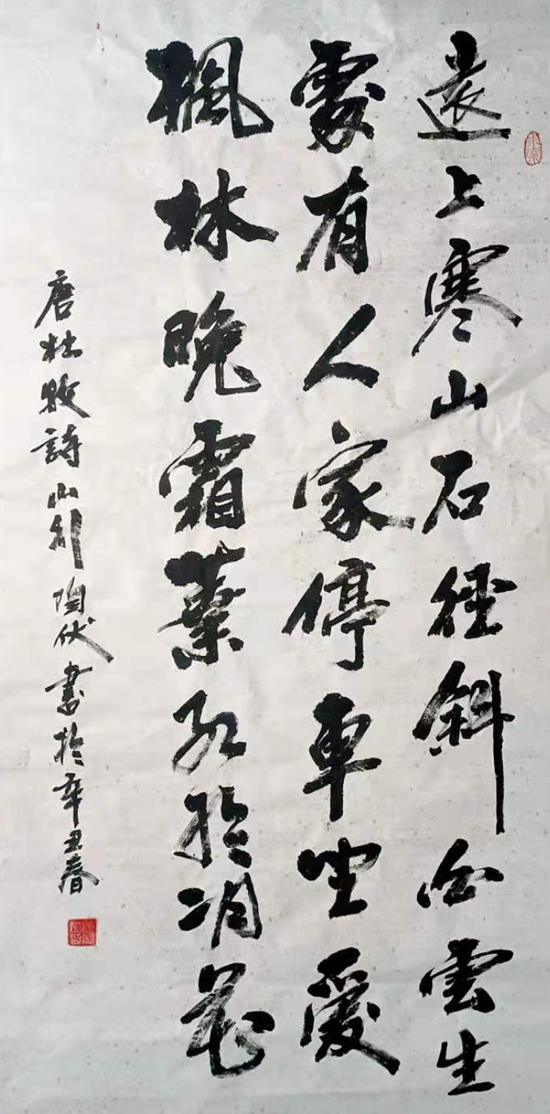 遠上寒山石徑斜白雲生
處有人家停車坐愛
楓林晚霜葉紅於二月花
唐杜牧詩山行陶伏書於辛丑春